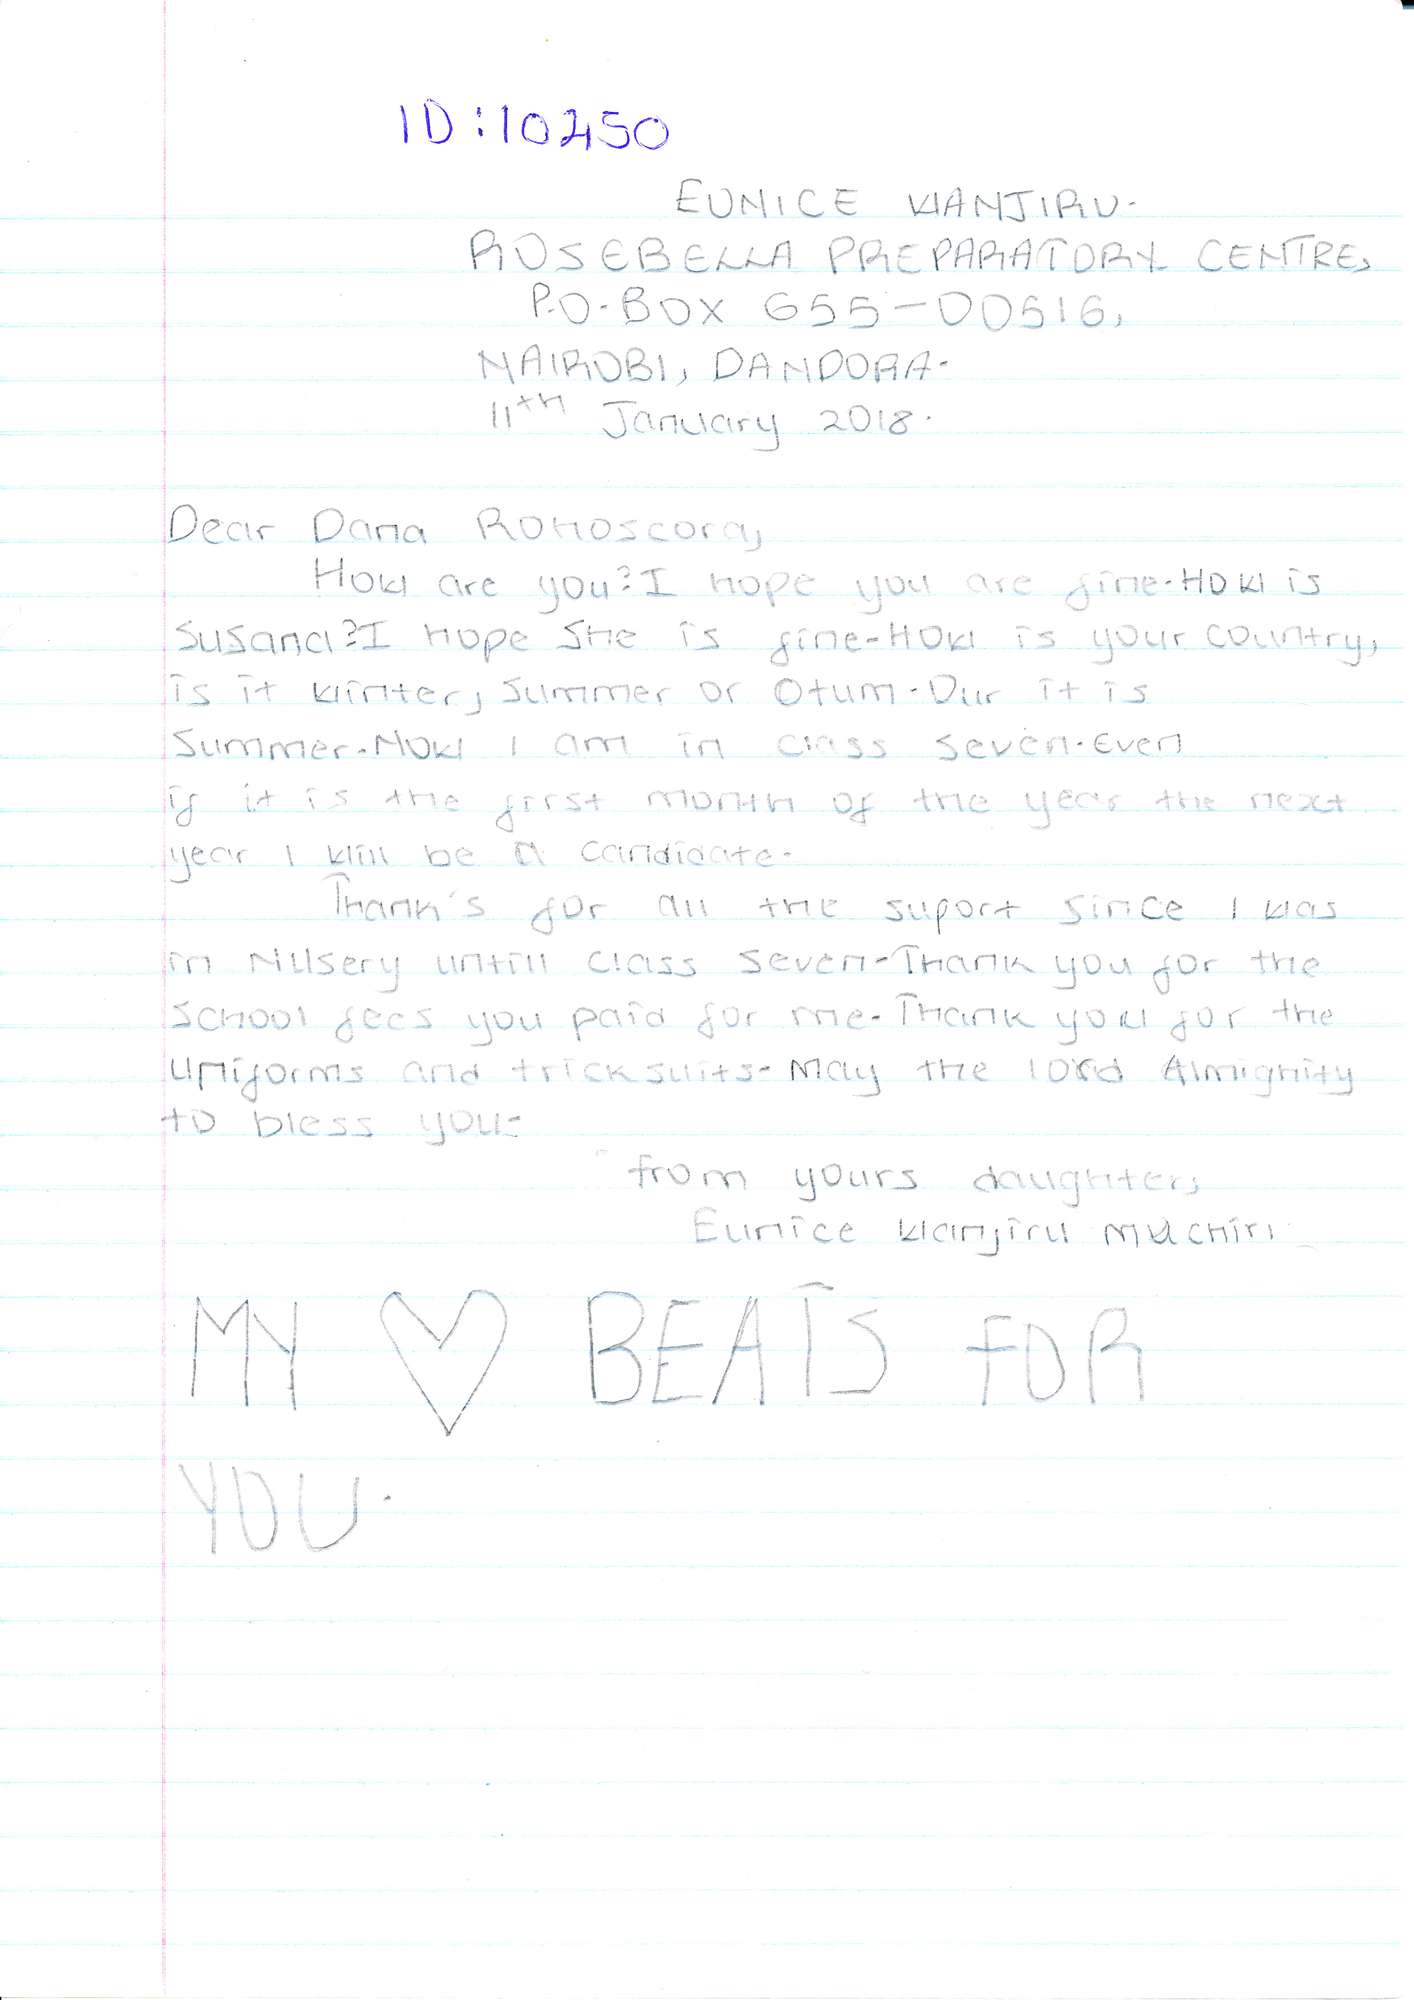 ID:10250
EUNICE WANJIRU.
ROSEBELLA PREPARATORY CENTRE,
P.O.BOX 655-00516,
NAIROBI, DANDORA.
11th January 2018.
Dear Dana Rohoscora,
How are you? I hope you are fine. How is
Susana? I hope She is fine. How is your country,
is it winter, summer or Otum. Our it is
Summer. Now I am in class seven. Even
if it is the first month of the year the next
year I will be a candidate.
Thank's for all the suport since I was
in Nusery untill class seven. Thank you for the
school fees you paid for me. Thank you for the
uniforms and tricksuits. May the lord Almighity
to bless you.
from yours daughter,
Eunice Wanjiru Muchiri
MY ♡ BEATS FOR
YOU.